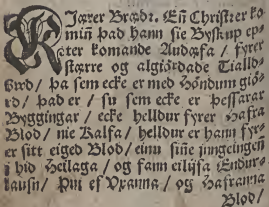 Kiærer Brædr. En Christr er ko
min þad hann sie Byskup ep-
ter komande Audæfa / fyrer
stærre og algiørdade Tialld-
bwd / þa sem ecke er med Høndum giø-
rd / þad er / su sem ecke er þessarar
Byggingar / ecke helldur fyrer Hafra
Blod / nie Kalfa / helldur er hann fyr-
er sitt eiged Blod / einu sine inngeingen
i hid Heilaga / og fann eilijfa Endur-
lausn / Þui ef Vxanna / og Hafranna
Blod /